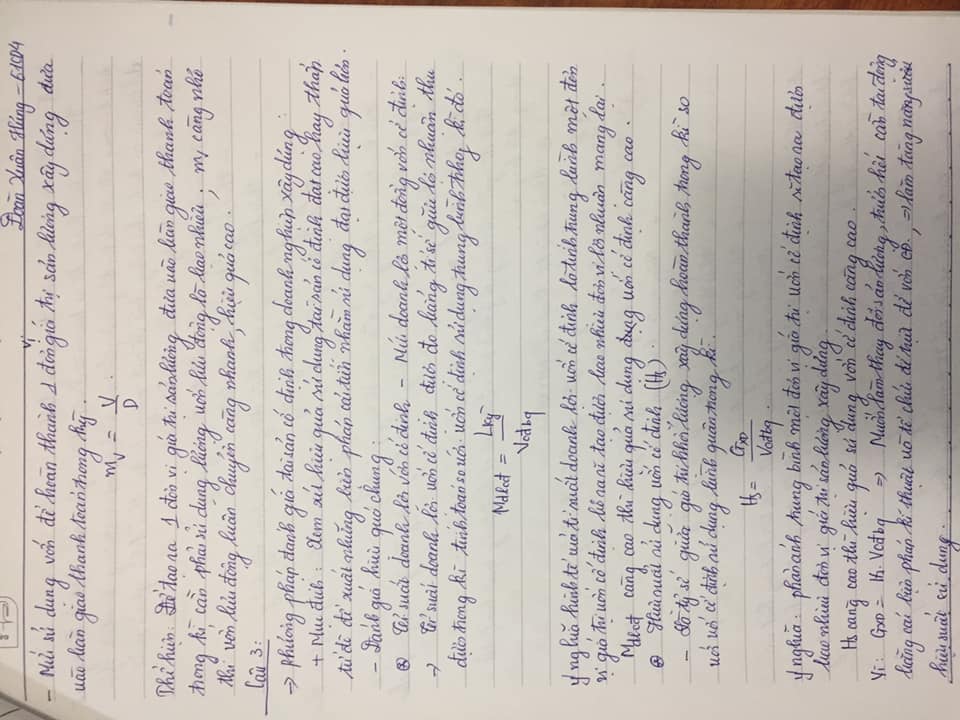 Đoàn Xuân Hùng - 61QD4
- Mức sử dụng vốn để hoàn thành 1 đơn vị giá trị sản lượng xây dựng dựa
vào bàn giao thanh toán trong kỳ.
mv = V / D
Thể hiện: Để tạo ra 1 đơn vị giá trị sản lượng dựa vào bàn giao thanh toán
trong kì cần phải sử dụng lượng vốn lưu động là bao nhiêu, mv càng nhỏ
thì vốn lưu động luân chuyển càng nhanh, hiệu quả cao.
Câu 3:
→ phương pháp đánh giá tài sản cố định trong doanh nghiệp xây dựng:
+ Mục đích: Xem xét hiệu quả sử dụng tài sản cố định đạt cao hay thấp
từ đó đề xuất những biện pháp cải tiến nhằm sử dụng đạt được hiệu quả hơn.
- Đánh giá hiệu quả chung:
⊕ Tỉ suất doanh lợi vốn cố định - Mức doanh lợi một đồng vốn cố định:
→ Tỉ suất doanh lợi vốn cố định được đo bằng tỉ số giữa lợi nhuận thu
được trong kì tính toán so với vốn cố định sử dụng trung bình trong kì đó.
Mdlcđ = Lkỳ / Vcđbq
Ý nghĩa kinh tế với tỉ suất doanh lợi vốn cố định là tính trung bình một đơn
vị giá trị vốn cố định bỏ ra sẽ tạo được bao nhiêu đơn vị lợi nhuận mang lại.
Mdlcđ càng cao thì hiệu quả sử dụng vốn cố định càng cao.
⊕ Hiệu suất sử dụng vốn cố định (Hs)
- Là tỷ số giữa giá trị khối lượng xây dựng hoàn thành trong kì so
với vố cố định sử dụng bình quân trong kì.
Hs = Gxo / Vcđbq
Ý nghĩa: phản ánh trung bình một đơn vị giá trị vốn cố định sẽ tạo ra được
bao nhiêu đơn vị giá trị sản lượng xây dựng.
Hs càng cao thì hiệu quả sử dụng vốn cố định càng cao
Vì: Gxo = Hs Vcđbq ⇒ Muốn làm thay đổi sản lượng, trước hết cần tác động
bằng các biện pháp kĩ thuật và tổ chức để vốn CĐ, ⇒ làm tăng năng suất
hiệu suất sử dụng.